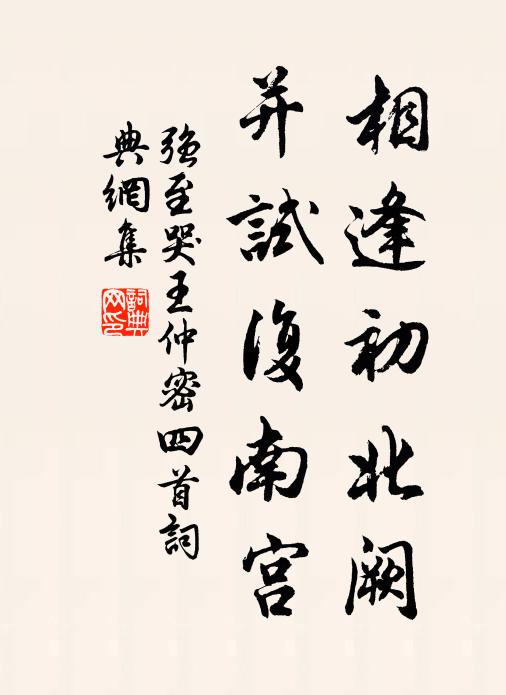 相逢初北阙
并試復南宫
强至哭王仲密四首詞
典網集
詞典网印